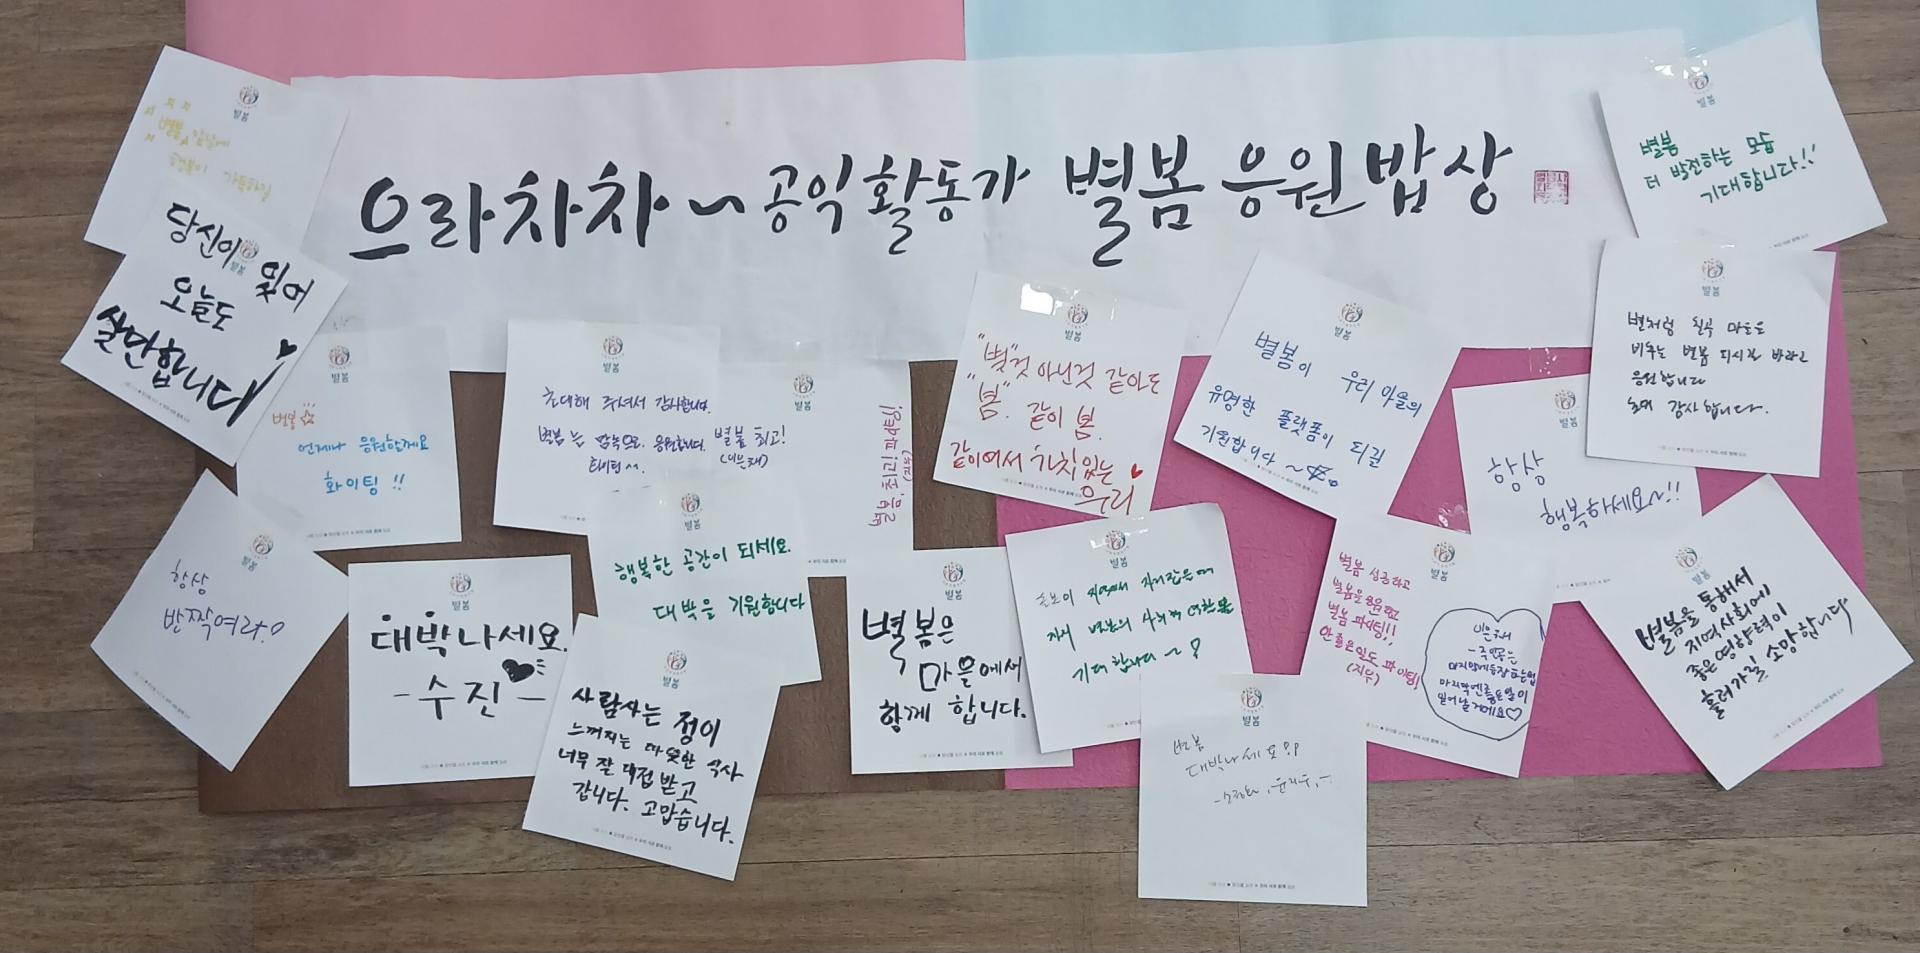 으라차차~ 공익활동가 별봄 응원밥상
별봄
별봄 앞날에
행복이 가득하길
당신이 있어
오늘도
살만합니다
별봄
별봄
언제나 응원할게요
화이팅 !!
별봄
항상
반짝여라
별봄
초대해 주셔서 감사합니다.
응원합니다.
별봄
별봄 최고!
별봄, 최고! 파이팅!
(지우)
별봄
대박나세요.
- 수진 -
별봄
행복한 공간이 되세요.
대박을 기원합니다
별봄
사람사는 정이
느껴지는 따뜻한 식사
너무 잘 대접 받고
갑니다. 고맙습니다.
별봄
별봄은
마을에서
함께 합니다.
별봄
"별"것 아닌것 같아도
"봄". 같이 봄.
같이여서 가치있는
우리
별봄
기대합니다~
별봄
별봄
대박나세요
별봄
별봄이 우리 마을의
유명한 플랫폼이 되길
기원합니다~
별봄
별봄 성공하고
별봄 파이팅!!
(지우)
별봄
항상
행복하세요~!!
별봄
별봄
더 발전하는 모습
기대합니다!!
별봄
별처럼 칠곡 마을을
비추는 별봄 되시길 바라고
응원합니다
초대 감사합니다.
별봄
별봄을 통해서
지역사회에
좋은 영향력이
흘러가길 소망합니다